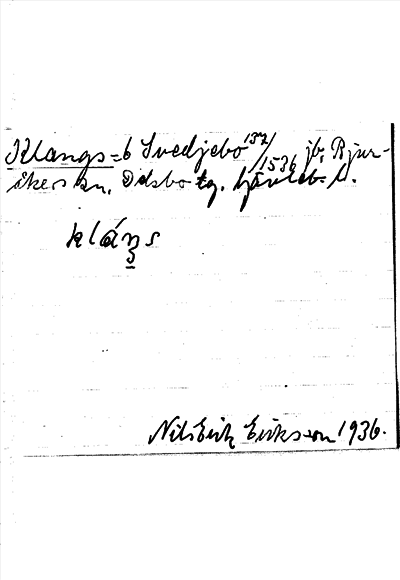 Klangs = b Svedjebo 132/1536 jb, Bjur-
åkers sn, Delsbo tg. Gävleb. l.
kláŋs
Nils Erik Eriksson 1936.